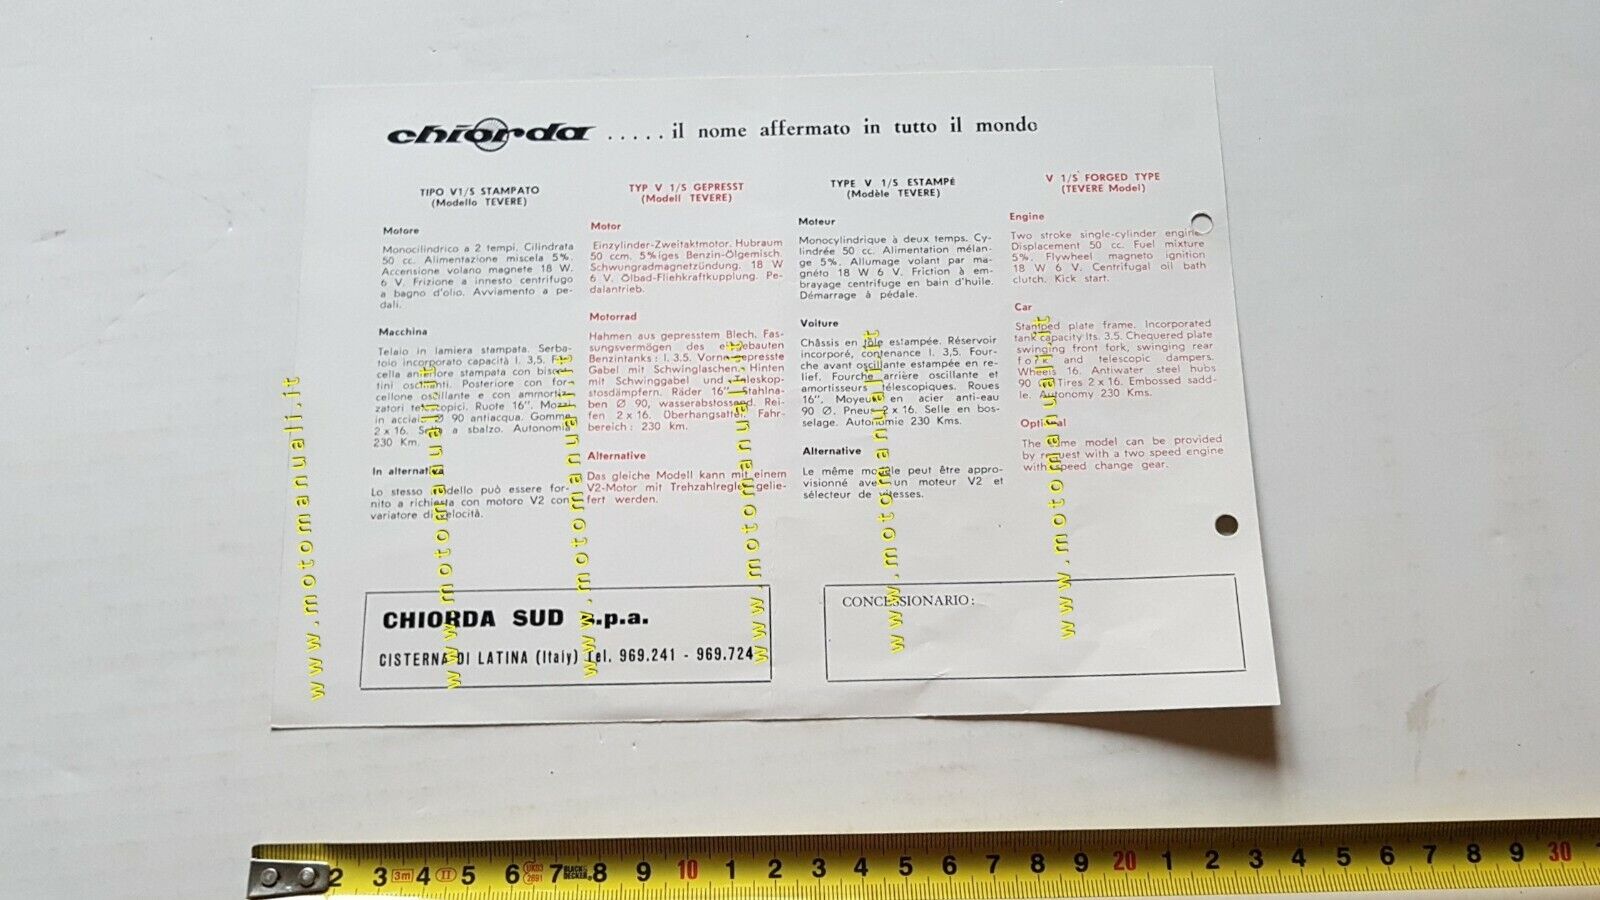 chiorda ..... il nome affermato in tutto il mondo
TIPO V1/S STAMPATO
(Modello TEVERE)
Motore
Monocilindrico a 2 tempi. Cilindrata
50 cc. Alimentazione miscela 5%.
Accensione volano magnete 18 W.
6 V. Frizione a innesto centrifugo
a bagno d'olio. Avviamento a pe-
dali.
Macchina
Telaio in lamiera stampata. Serba-
toio incorporato capacità l. 3,5. For-
cella anteriore stampata con biscot-
tini oscillanti. Posteriore con for-
cellone oscillante e con ammortiz-
zatori telescopici. Ruote 16". Mozzi
in acciaio Ø 90 antiacqua. Gomme
2 x 16. Sella a sbalzo. Autonomia
230 Km.
In alternativa
Lo stesso modello può essere for-
nito a richiesta con motore V2 con
variatore di velocità.
TYP V 1/S GEPRESST
(Modell TEVERE)
Motor
Einzylinder-Zweitaktmotor. Hubraum
50 ccm. 5%iges Benzin-Ölgemisch.
Schwungradmagnetzündung. 18 W
6 V. Ölbad-Fliehkraftkupplung. Pe-
dalantrieb.
Motorrad
Hahmen aus gepresstem Blech. Fas-
sungsvermögen des eingebauten
Benzintanks: l. 3.5. Vorne gepresste
Gabel mit Schwinglaschen. Hinten
mit Schwinggabel und Teleskop-
stosdämpfern. Räder 16". Stahlna-
ben Ø 90, wasserabstossend. Rei-
fen 2 x 16. Oberhangsattel. Fahr-
bereich: 230 km.
Alternative
Das gleiche Modell kann mit einem
V2-Motor mit Trehzahlregler gelie-
fert werden.
TYPE V 1/S ESTAMPÉ
(Modèle TEVERE)
Moteur
Monocylindrique à deux temps. Cy-
lindrée 50 cc. Alimentation mélan-
ge 5%. Allumage volant par ma-
gnéto 18 W 6 V. Friction à em-
brayage centrifuge en bain d'huile.
Démarrage à pédale.
Voiture
Châssis en tôle estampée. Réservoir
incorporé, contenance l. 3,5. Four-
che avant oscillante estampée en re-
lief. Fourche arrière oscillante et
amortisseurs télescopiques. Roues
16". Moyeux en acier anti-eau
90 Ø. Pneus 2 x 16. Selle en bos-
selage. Autonomie 230 Kms.
Alternative
Le même modèle peut être appro-
visionné avec un moteur V2 et
sélecteur de vitesses.
V 1/S FORGED TYPE
(TEVERE Model)
Engine
Two stroke single-cylinder engine
Displacement 50 cc. Fuel mixture
5%. Flywheel magneto ignition
18 W 6 V. Centrifugal oil bath
clutch. Kick start.
Car
Stamped plate frame. Incorporated
tank capacity lts. 3.5. Chequered plate
swinging front fork, swinging rear
fork and telescopic dampers.
Wheels 16. Antiwater steel hubs
90 Ø Tires 2 x 16. Embossed sadd-
le. Autonomy 230 Kms.
Optional
The same model can be provided
by request with a two speed engine
with speed change gear.
CHIORDA SUD s.p.a.
CISTERNA DI LATINA (Italy) Tel. 969.241 - 969.724
CONCESSIONARIO:
www.motomanuali.it
www.motomanuali.it
www.motomanuali.it
www.motomanuali.it
www.motomanuali.it
www.motomanuali.it
2 3 3m 4 II 5 6 7 BLACK & DECKER 8 9 10 1 2 3 4 5 6 7 8 9 20 1 2 3 4 5 6 7 8 9 30